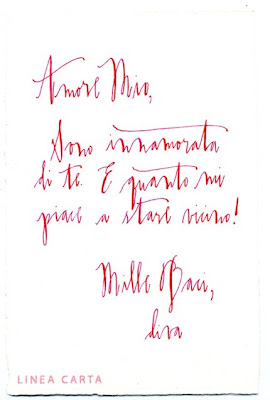 Amore Mio,
Sono innamorata
di te. E quanto mi
piace a stare vicino!
Mille Baci,
diva
LINEA CARTA